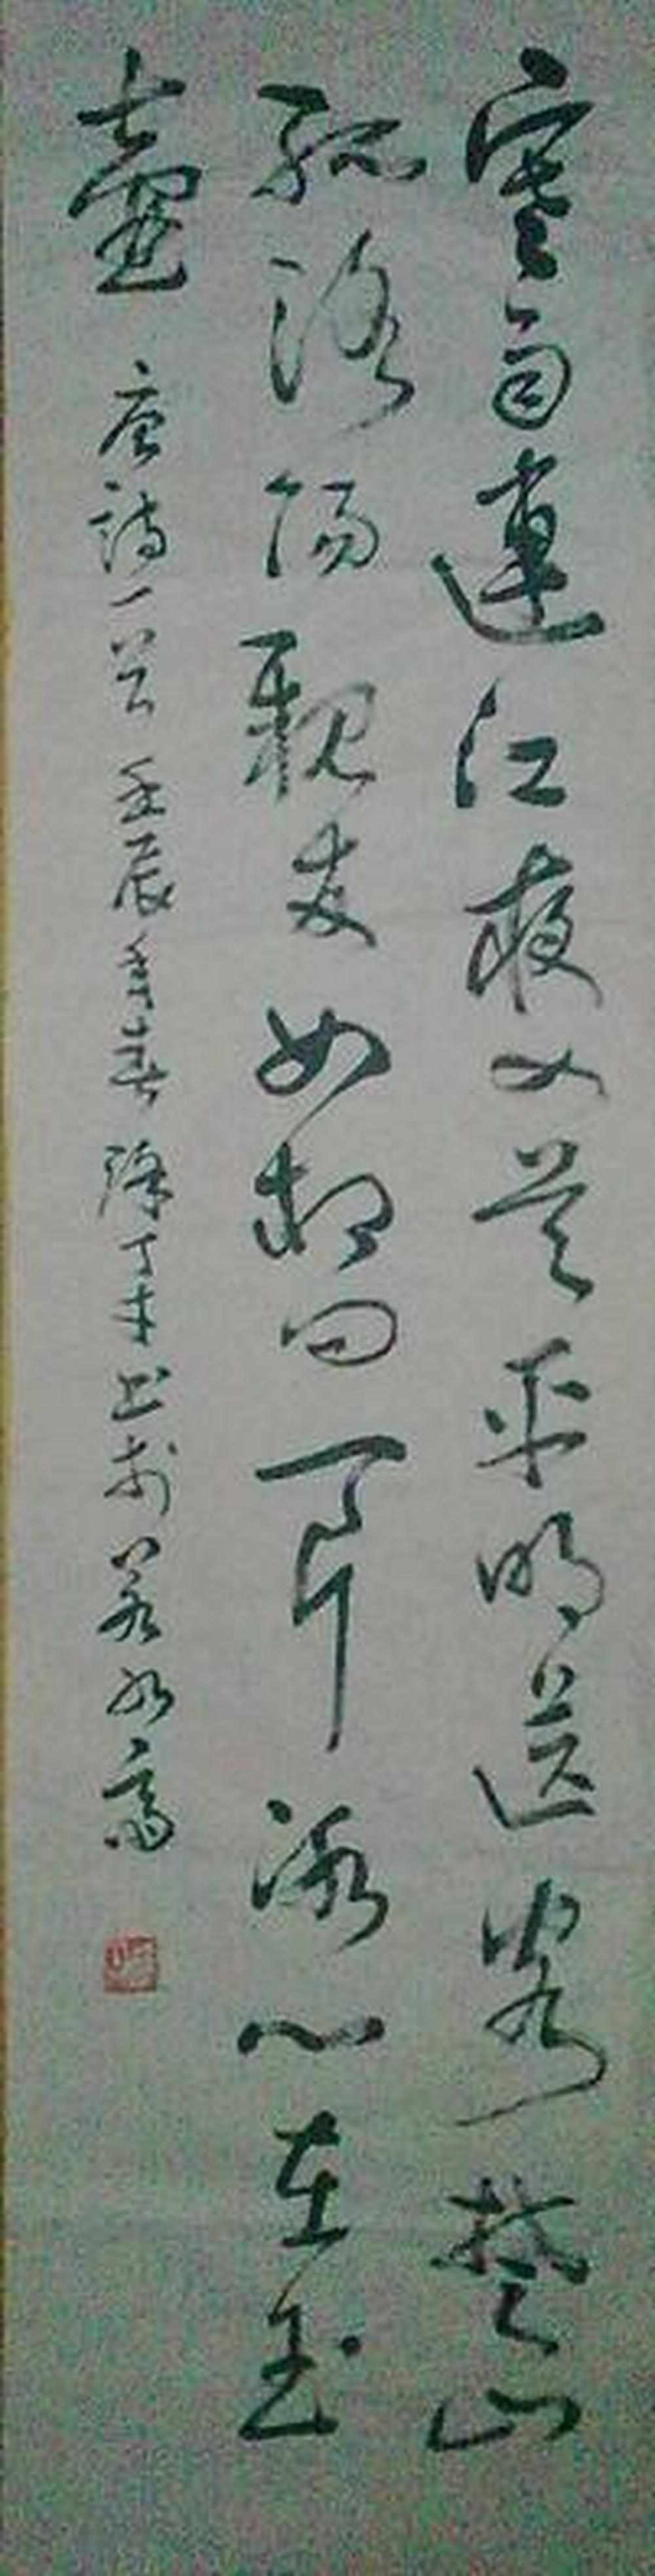 寒雨連江夜入吴平明送客楚山
孤洛陽親友如相問一片冰心在玉
壺 唐詩一首 壬辰年春 丁未书於若水斋